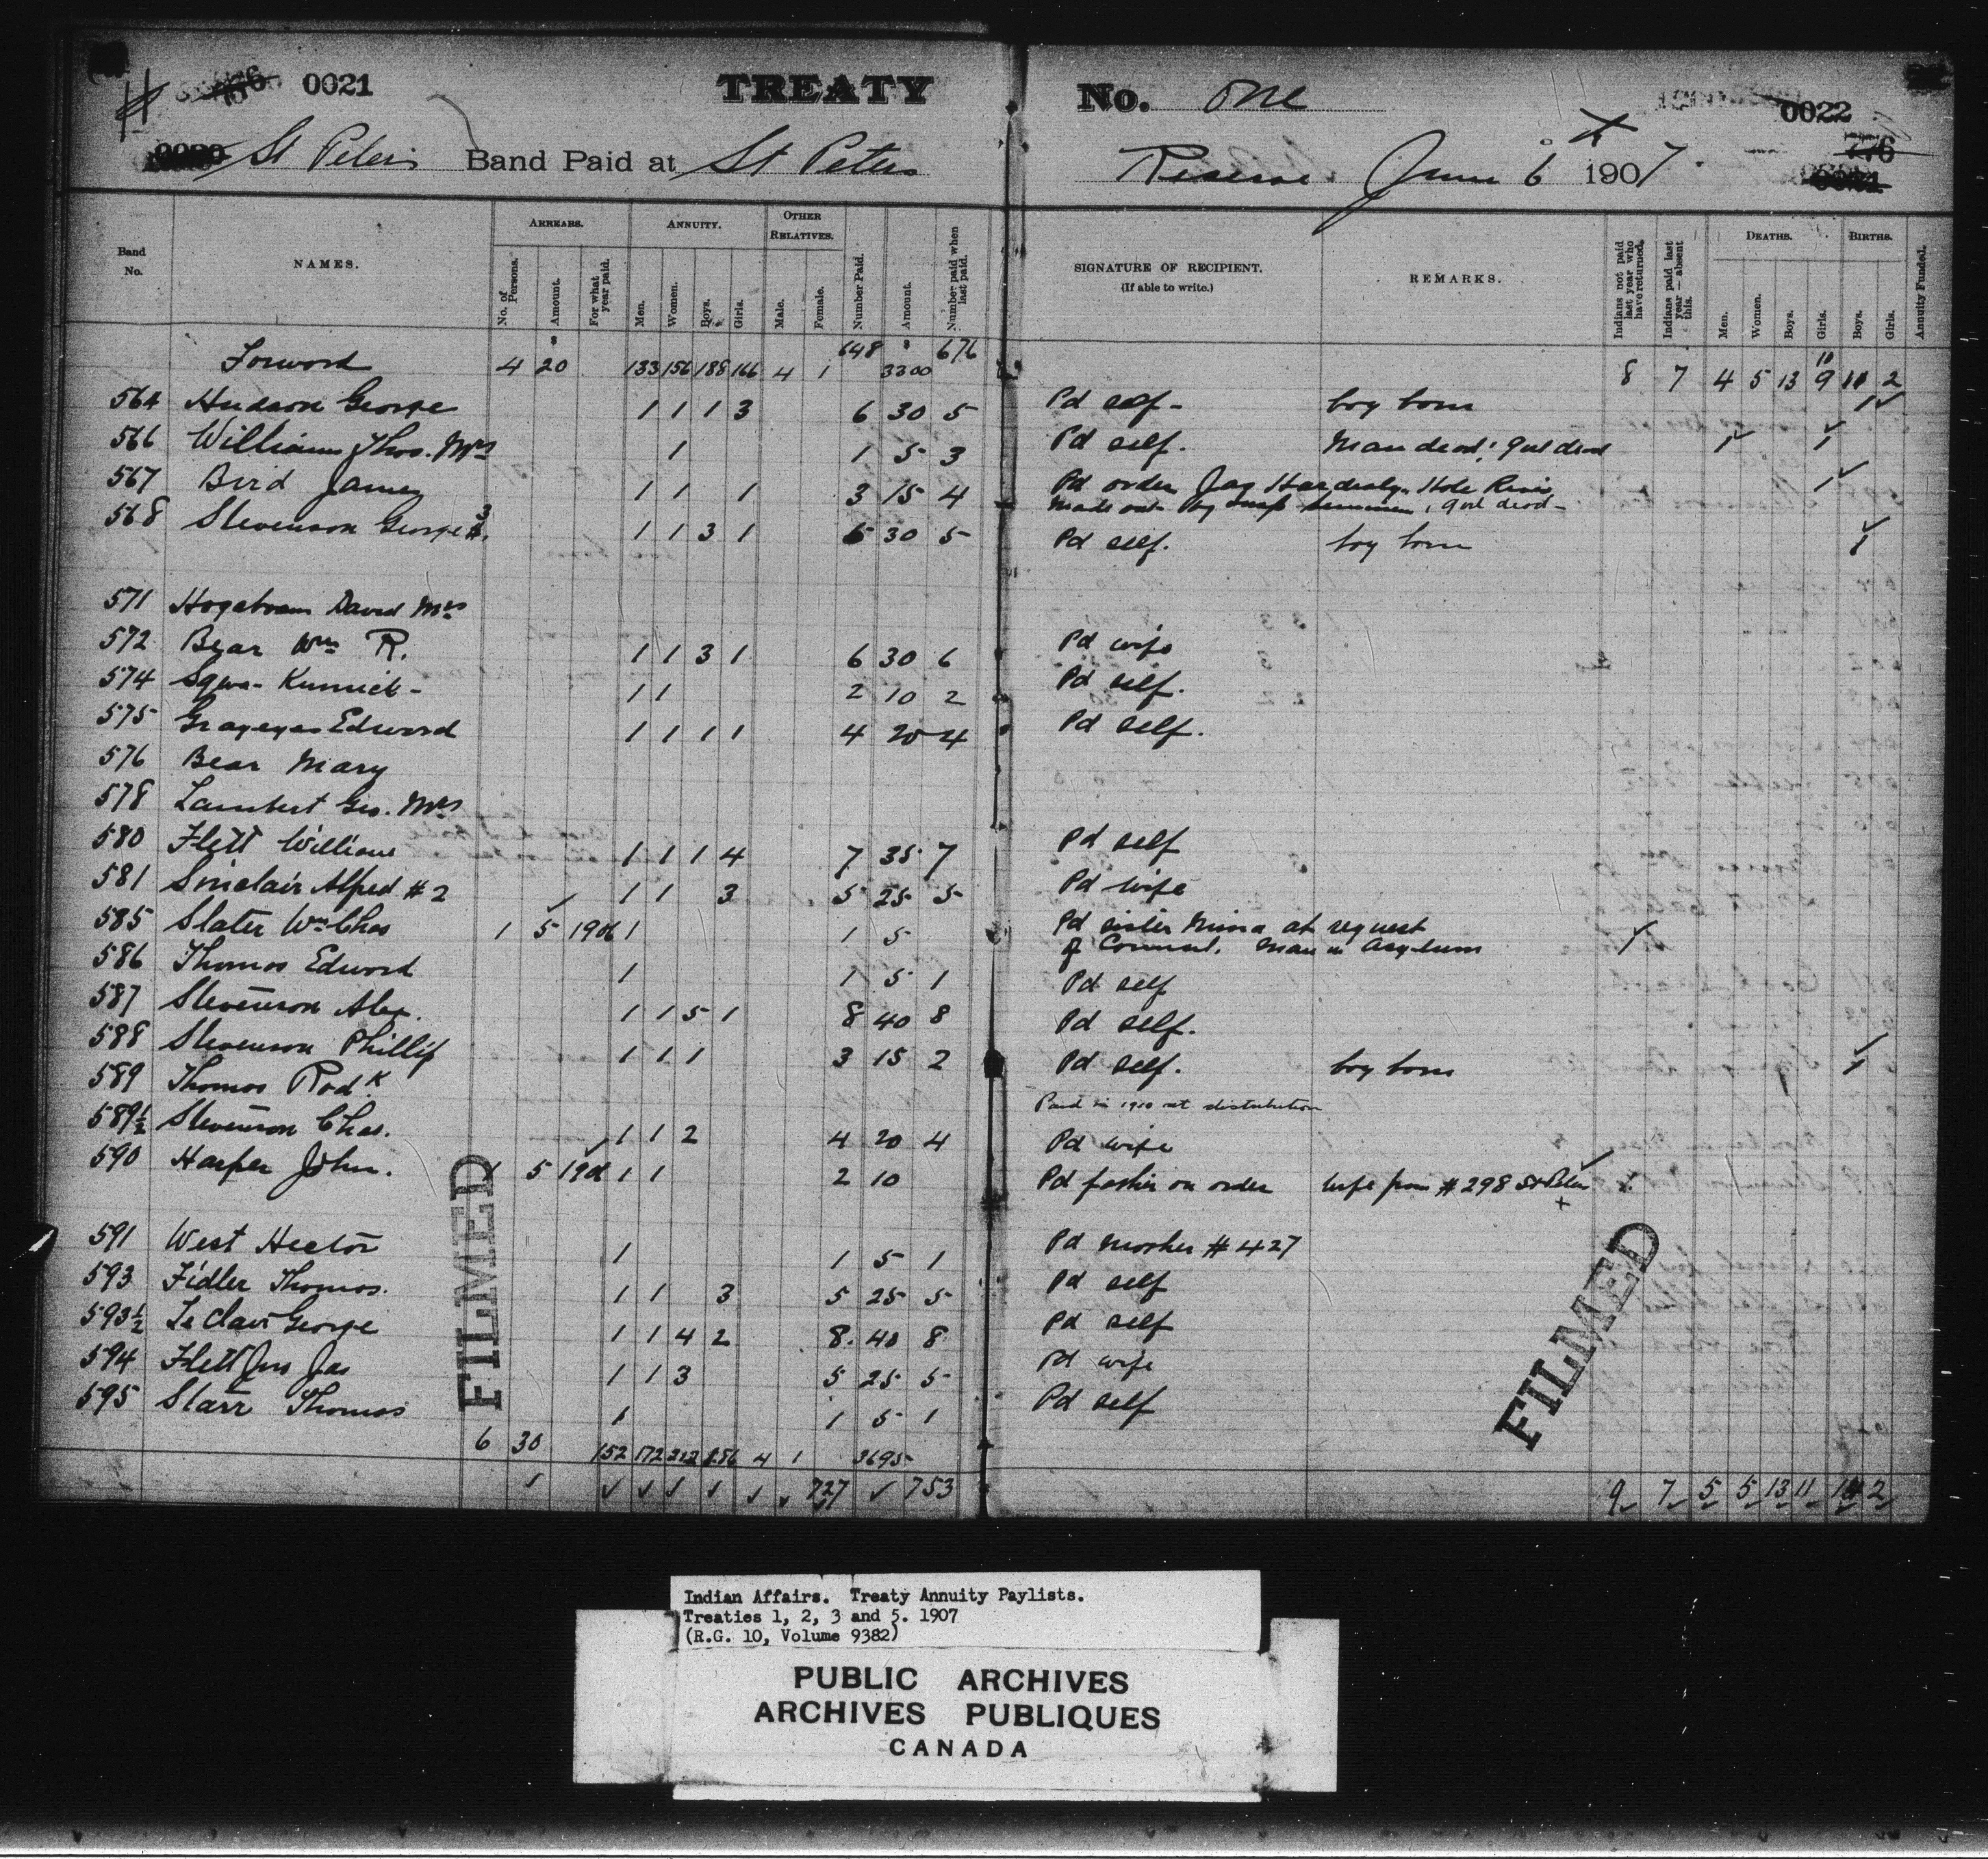 0021 TREATY No. One 0022
St Peters Band Paid at St Peters Reserve. June 6 1907.
776
Band No. NAMES. ARREARS. ANNUITY. OTHER RELATIVES. SIGNATURE OF RECIPIENT. (If able to write.) REMARKS. DEATHS. BIRTHS.
No. of Persons. Amount. For what year paid. Men. Women. Boys. Girls. Male. Female. Number Paid. Amount. Number paid when last paid. Indians not paid last year who have returned. Indians paid last year—absent this. Men. Women. Boys. Girls. Boys. Girls. Annuity Funded.
Forword 4 20 133 156 188 166 4 1 648 3300 676 8 7 4 5 13 9 10 11 2
564 Hudson George 1 1 1 3 6 30 5 Pd self - boy born 1
566 Williams Thos. Mrs 1 1 5 3 Pd self. Man dead; girl dead 1 1
567 Bird James 1 1 1 3 15 4 Pd order Jas Hole River 1
made out by girl dead -
568 Stevenson George 3 1 1 3 1 6 30 5 Pd self. boy born 1
571 David Mrs
572 Bear Wm R. 1 1 3 1 6 30 6 Pd wife
574 Sqwa- Kunnick - 1 1 2 10 2 Pd self.
575 Grayeyes Edward 1 1 1 1 4 20 4 Pd self.
576 Bear Mary
578 Lambert Geo. Mrs
580 Flett William 1 1 1 4 7 35 7 Pd self
581 Sinclair Alfred #2 1 1 3 5 25 5 Pd wife
585 Slater Wm Chas 1 5 1906 1 1 5 Pd sister at request
of Man in Asylum
586 Thomas Edword 1 1 5 1 Pd self
587 Stevenson Alex. 1 1 5 1 8 40 8 Pd self.
588 Stevenson Phillip 1 1 1 3 15 2 Pd self. boy born 1
589 Thomas Rodk
Paid in 1910 at distribution
589½ Stevenson Chas. 1 1 2 4 20 4 Pd wife
590 Harper John. 1 5 1906 1 1 2 10 Pd father on order wife from #298 St Peter
591 West Hector 1 1 5 1 Pd mother #427
593 Fidler Thomas. 1 1 3 5 25 5 Pd self
593½ Le Clair George 1 1 4 2 8. 40 8 Pd self
594 Flett Jas 1 1 3 5 25 5 Pd wife
595 Starr Thomas 1 1 5 1 Pd self
6 30 152 172 212 186 4 1 3695
727 753 9 7 5 5 13 11 14 2
FILMED
FILMED
Indian Affairs. Treaty Annuity Paylists.
Treaties 1, 2, 3 and 5. 1907
(R.G. 10, Volume 9382)
PUBLIC ARCHIVES
ARCHIVES PUBLIQUES
CANADA